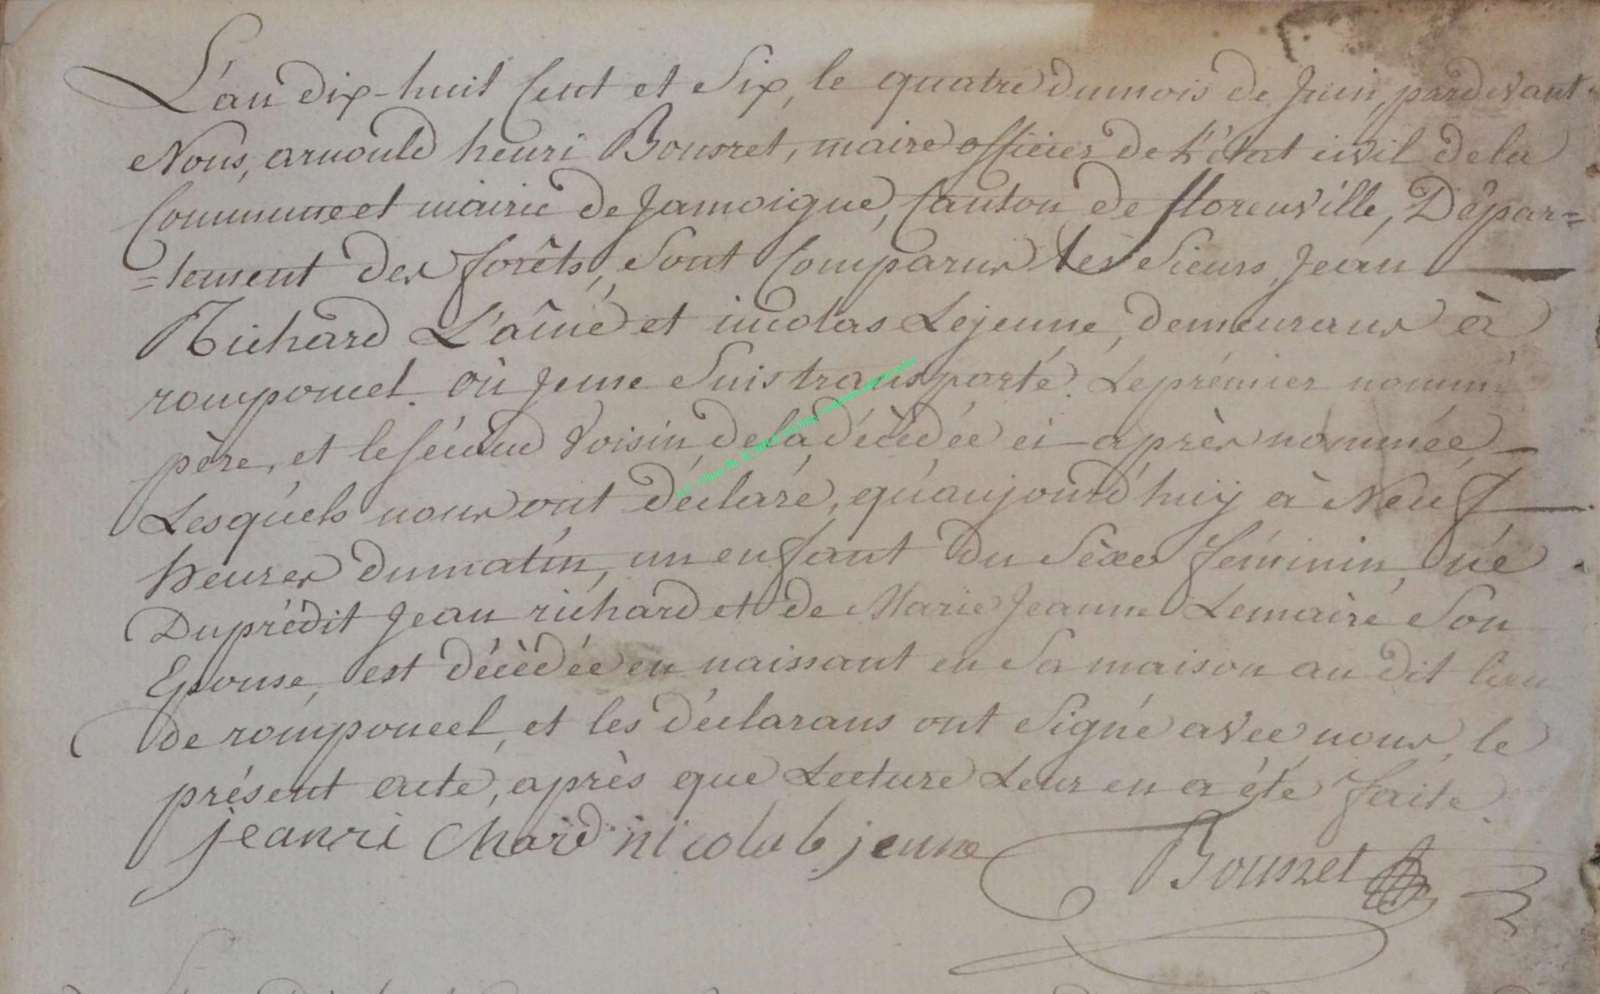 L'an dix-huit Cent et Six, le quatre du mois de Juin, pardevant
Nous, arnould henri Bousret, maire officier de L'état civil de la
Commune et mairie de Jamoigne, Canton de florenville, Dépar=
=tement des forêts, Sont Comparus les Sieurs Jean
Richard L'aîné et nicolas Lejeune, demeurans à
romponcel où Je me Suis transporté. Le prémier nommé
père, et le sécond Voisin de la décèdée ci-après nommée,
Lesquéls nous ont déclaré, qu'aujourd'huy à Neuf
heures du matin, un enfant du Séxe féminin, né
Duprédit Jean richard et de Marie Jeanne Lemaire Son
Epouse, est décèdée en naissant en Sa maison au dit lieu
de romponcel, et les déclarans ont Signé avec nous, le
présent acte, après que Lecture Leur en a été faite.
jean ri chard nicola le jeune Bousret